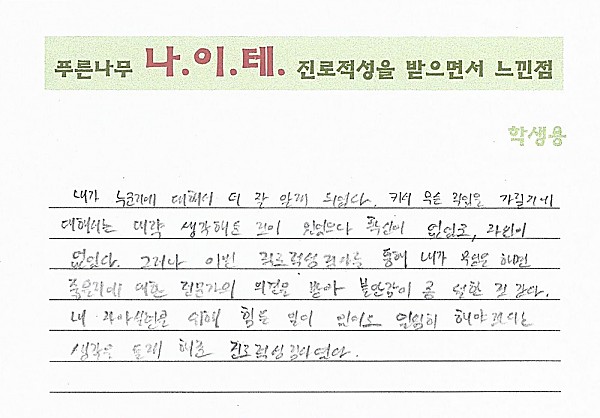 푸른나무 나.이.테. 진로적성을 받으면서 느낀점
학생용
내가 누군지에 대해서 더 잘 알게 되었다. 커서 무슨 직업을 가질지에
대해서는 대략 생각해본 적이 있었으나 확신이 없었고, 자신이
없었다. 그러나 이번 진로적성검사를 통해 내가 무엇을 하면
좋을지에 대한 전문가의 의견을 받아 불안감이 좀 덜한 것 같다.
내 자아실현을 위해 힘든 일이 있어도 열심히 해야겠다는
생각을 들게 해준 진로적성검사였다.